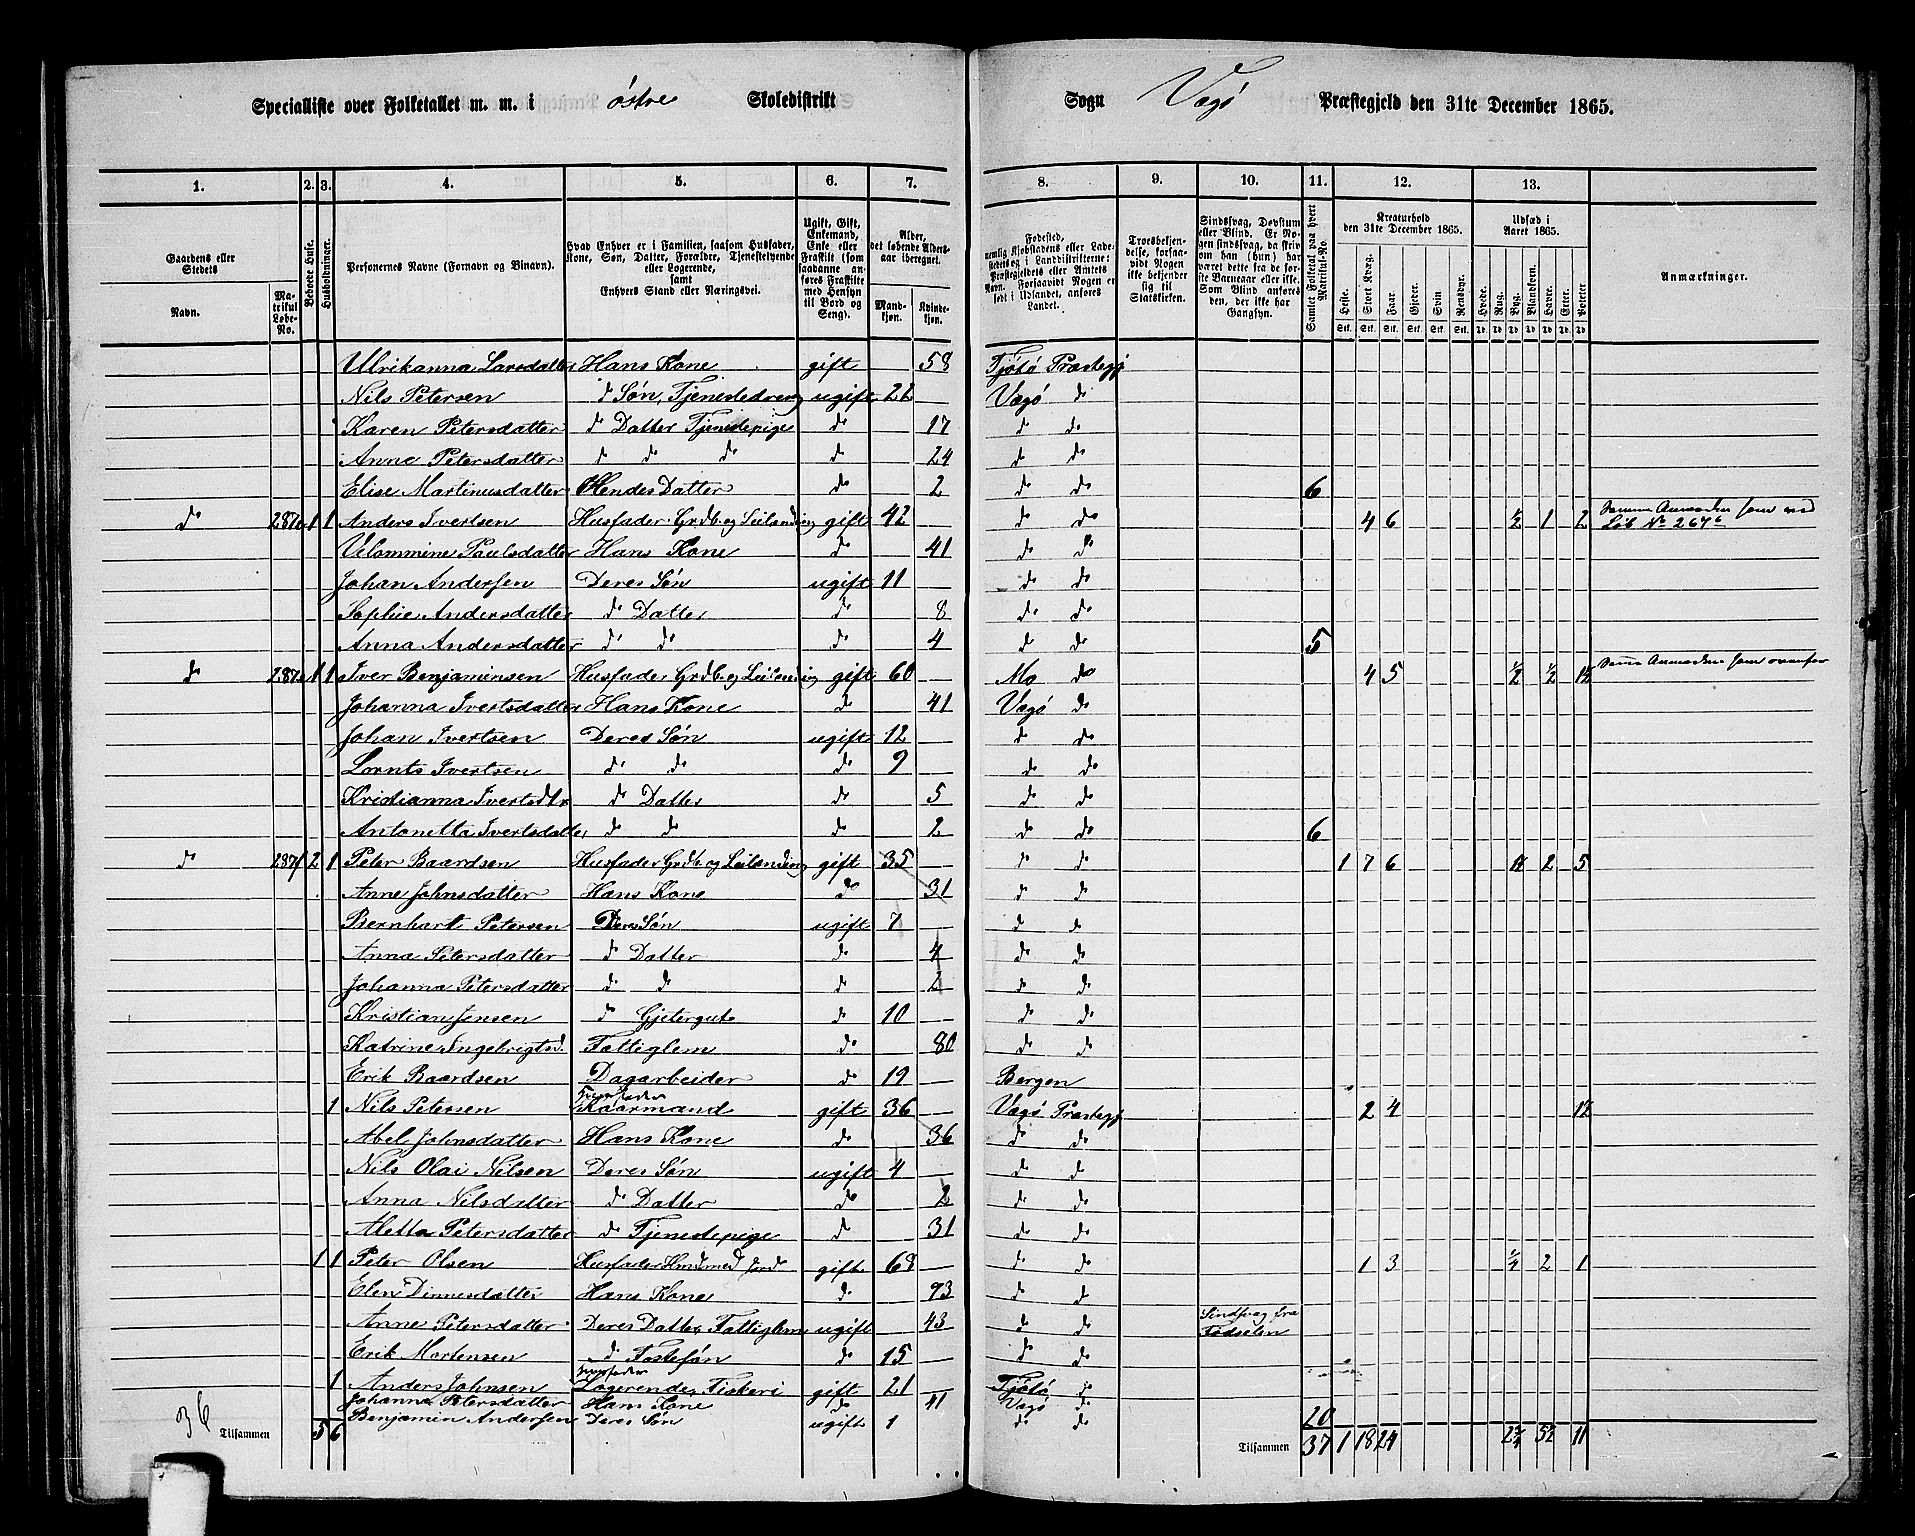 Specialliste over Folketallet m. m. i østre Skoledistrikt Sogn Vegø Præstegjeld den 31te December 1865.
1. 2. 3. 4. 5. 6. 7. 8. 9. 10. 11. 12. 13.
Gaardens eller Stedets
Navn. Matrikul Løbe-No.
Beboede Huse.
Husholdninger.
Personernes Navne (Fornavn og Binavn).
Hvad Enhver er i Familien, saasom Husfader, Kone, Søn, Datter, Forældre, Tjenestetyende eller Logerende, samt Enhvers Stand eller Næringsvei.
Ugift, Gift, Enkemand, Enke eller Fraskilt (som saadanne anføres Fraskilte med Hensyn til Bord og Seng).
Alder, det løbende Aldersaar iberegnet.
Mandkjøn. Kvindekjøn.
Fødested, nemlig Kjøbstadens eller Ladestedets og i Landdistrikterne: Præstegjeldets eller Amtets Navn. Forsaavidt Nogen er født i Udlandet, anføres Landet.
Troesbekjendelse, forsaavidt Nogen ikke bekjender sig til Statskirken.
Sindssvag, Døvstum eller Blind. Er Nogen sindssvag, da skriv han (hun) har været dette fra de første Barneaar eller ikke. Som Blind anføres den, der ikke har Gangsyn.
Samlet Folketal paa hvert Matrikul-No.
Kreaturhold den 31te December 1865.
Heste. Stort Kvæg. Faar. Gjeder. Svin. Rensdyr.
Udsæd i Aaret 1865.
Hvede. Rug. Byg. Blandkorn. Havre. Erter. Poteter.
Anmærkninger.
Ulrikanna Larsdatter Hans Kone gift 58 Tjøtø Præstegj
Nils Petersen do Søn, Tjenestedreng ugift 22 Vegø do
Karen Petersdatter do Datter Tjenestepige do 17 do do
Anne Petersdatter do do do do 24 do do
Elise Martinusdatter Hendes Datter do 2 do do 6
do 287 1 1 Anders Ivertsen Husfader Grdb. og Leilænding gift 42 do do 4 6 ½ 1 2 Samme Anmærkn som ved Løb No 267
Velommine Paulsdatter Hans Kone do 41 do do
Johan Andersen Deres Søn ugift 11 do do
Sophie Andersdatter do Datter do 8 do do
Anna Andersdatter do do do 4 do do 5
do 287 1 1 Iver Benjaminsen Husfader Grdb. og Leilænding gift 60 Mo do 4 5 ½ ½ 1½ Samme Anmærkn som ovenfor
Johanna Ivertsdatter Hans Kone do 41 Vegø do
Johan Ivertsen Deres Søn ugift 12 do do
Lornts Ivertsen do do do 9 do do
Kristianna Ivertsdtr do Datter do 5 do do
Antonetta Ivertsdatter do do do 2 do do 6
do 287 2 1 Peter Baardsen Husfader Grdb. og Leilænding gift 35 do do 1 7 6 2 5
Anne Johnsdatter Hans Kone do 31 do do
Bernhart Petersen Deres Søn ugift 7 do do
Anna Petersdatter do Datter do 4 do do
Johanna Petersdatter do do do 2 do do
Kristian Jensen do Gjetergut do 10 do do
Katrine Ingebrigtsd. Fattiglem do 80 do do
Erik Baardsen Dagarbeider do 19 Bergen
1 Nils Petersen Husfader Kaarmand gift 36 Vegø Præstegj 2 4 1½
Abel Johnsdatter Hans Kone do 36 do do
Nils Olai Nilsen Deres Søn ugift 4 do do
Anna Nilsdatter do Datter do 2 do do
Aletta Petersdatter do Tjenestepige do 31 do do
1 1 Peter Olsen Husfader Husmd med Jord gift 68 do do 1 3 ¼ 2 1
Elen Dinnesdatter Hans Kone do 73 do do
Anne Petersdatter Deres Datter Fattiglem ugift 43 do do Sindsvag fra Fødselen
Erik Mortensen do Fostersøn do 15 do do
1 Anders Johnsen Husfader Logerende, Fiskeri gift 21 Tjøtø do
Johanna Petersdatter Hans Kone do 41 Vegø do
Benjamin Andersen Deres Søn ugift 1 do do 20
36 Tilsammen 5 6 Tilsammen 37 1 18 24 2¾ 5½ 11